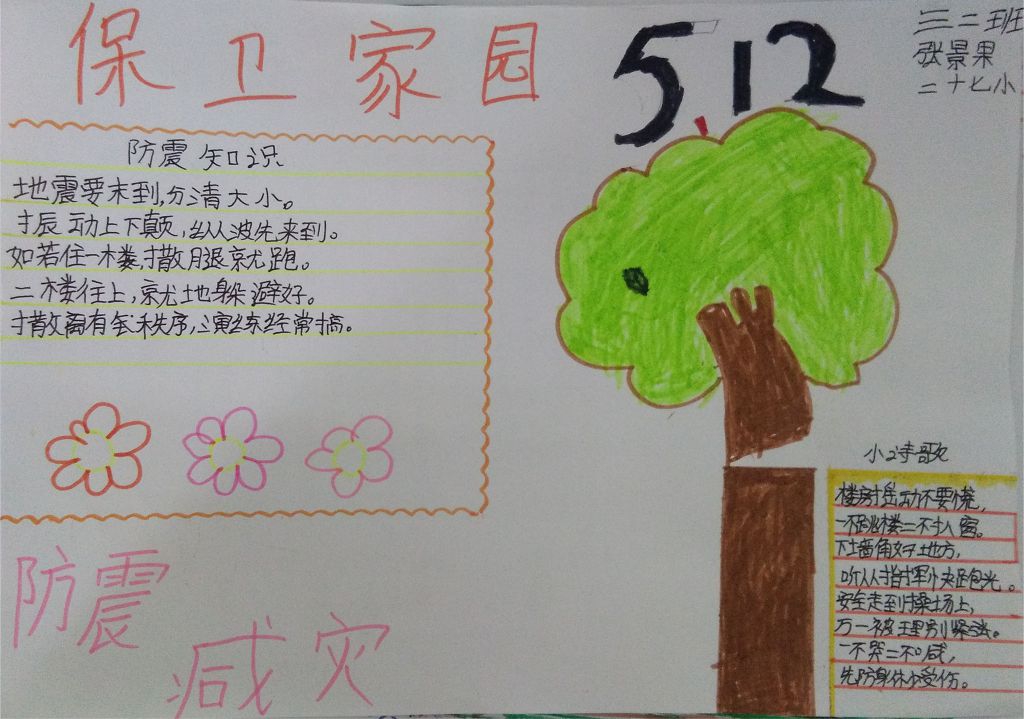 保卫家园
5.12
三二班
张景果
二十七小
防震知识
地震要末到,分清大小。
振动上下颠,纵波先来到。
如若住一楼,撒腿就跑。
二楼往上,就地躲避好。
撤离有金秩序,演练经常搞。
小诗歌
楼房摇动不要慌,
一不跳楼二不扒窗。
下墙角好地方,
听从指挥快跑光。
安全走到操场上,
万一被埋别紧张。
一不哭二不喊,
先防身体少受伤。
防震
减灾